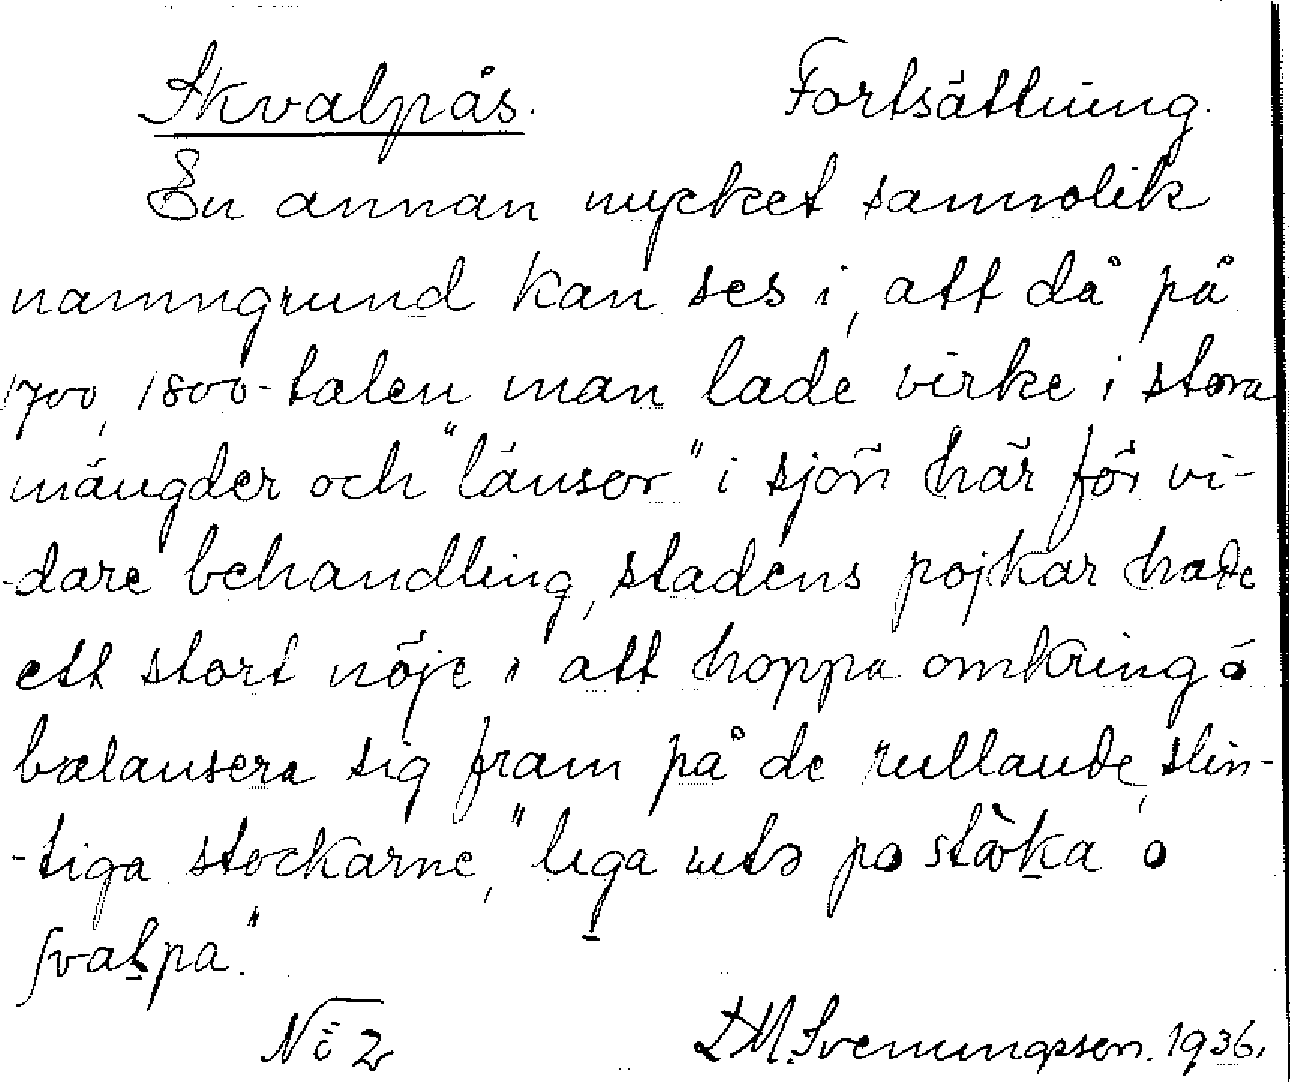 Skvalpås. Fortsättning.
En annan mycket sannolik
namngrund kan ses i, att då på
1700, 1800-talen man lade virke i stora
mängder och "länsor" i sjön här för vi-
-dare behandling, stadens pojkar hade
ett stort nöje i att hoppa omkring o
balansera sig fram på de rullande, slin-
-tiga stockarne, "liga uto po ståka o
svalpa."
No 2 L.M. Svenungsson. 1936.